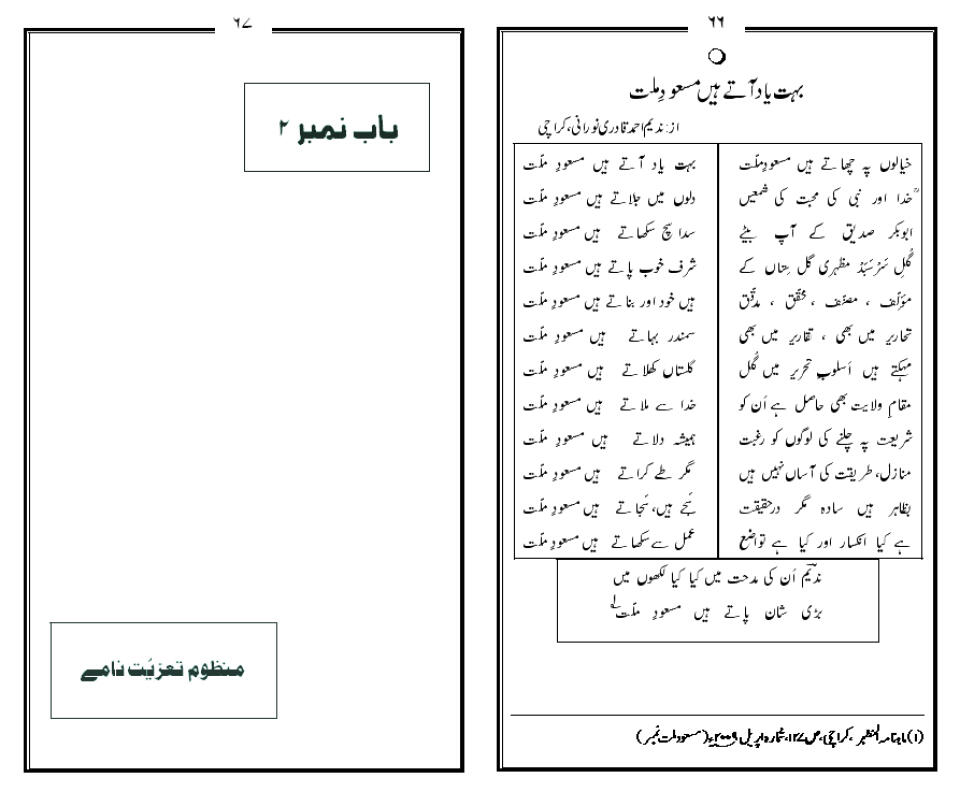 ۶۶
بہت یاد آتے ہیں مسعودِ ملت
از: ندیم احمد قادری نورانی، کراچی
خیالوں پہ چھاتے ہیں مسعودِ ملّت بہت یاد آتے ہیں مسعودِ ملّت
خدا اور نبی کی محبت کی شمعیں دلوں میں جلاتے ہیں مسعودِ ملّت
ابوبکر صدیق کے آپ بیٹے سدا سچ سکھاتے ہیں مسعودِ ملّت
گُلِ سَرْسَبَدْ مظہری گل ستاں کے شرف خوب پاتے ہیں مسعودِ ملّت
مؤلّف ، مصنّف ، محقّق ، مدقّق ہیں خود اور بناتے ہیں مسعودِ ملّت
تحاریر میں بھی ، تقاریر میں بھی سمندر بہاتے ہیں مسعودِ ملّت
مہکتے ہیں اُسلوبِ تحریر میں گُل گلستاں کھلاتے ہیں مسعودِ ملّت
مقامِ ولایت بھی حاصل ہے اُن کو خدا سے ملاتے ہیں مسعودِ ملّت
شریعت پہ چلنے کی لوگوں کو رغبت ہمیشہ دلاتے ہیں مسعودِ ملّت
منازل، طریقت کی آساں نہیں ہیں مگر طے کراتے ہیں مسعودِ ملّت
بظاہر ہیں سادہ مگر درحقیقت سَجے ہیں، سَجاتے ہیں مسعودِ ملّت
ہے کیا انکسار اور کیا ہے تواضع عمل سے سکھاتے ہیں مسعودِ ملّت
ندیمؔ اُن کی مدحت میں کیا کیا لکھوں میں
بڑی شان پاتے ہیں مسعودِ ملّت ۱
(۱) ماہنامہ المظہر ، کراچی، ص ۱۲۷، شمارہ اپریل ۲۰۰۹ء (مسعودِ ملت نمبر)
۶۷
باب نمبر ۲
منظوم تعزیّت نامے